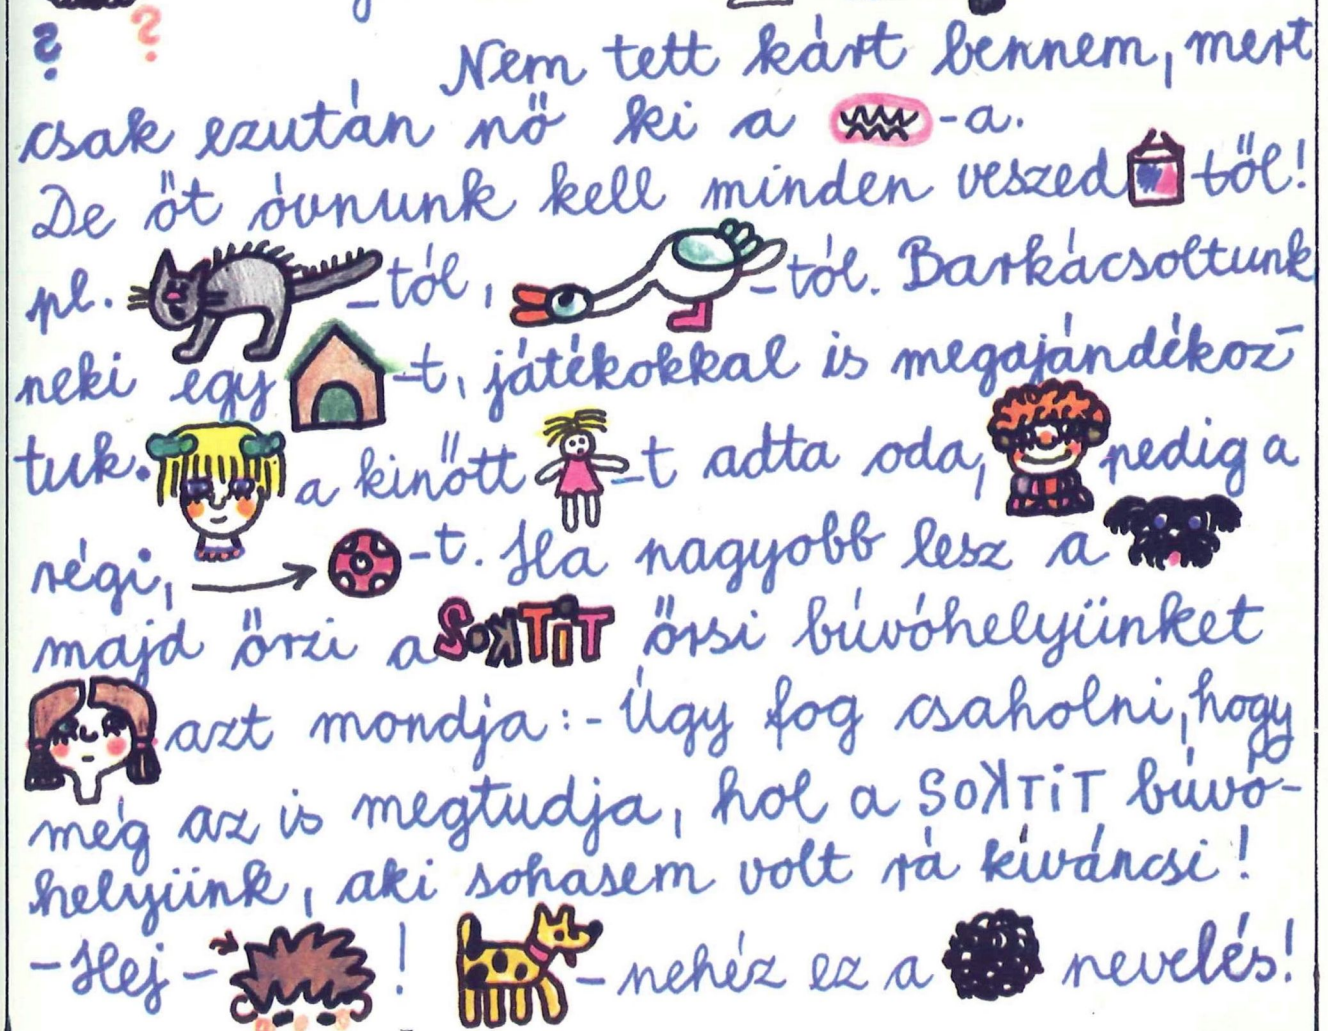 ? ?
Nem tett kárt bennem, mert
csak ezután nő ki a -a.
De őt óvnunk kell minden veszed től!
pl. -tól, -tól. Barkácsoltunk
neki egy -t, játékokkal is megajándékoz-
tuk. a kinőtt -t adta oda, pedig a
régi, -t. Ha nagyobb lesz a
majd őrzi a SOKTIT őrsi búvóhelyünket
azt mondja: - Úgy fog csaholni, hogy
még az is megtudja, hol a SOKTiT búvó-
helyünk, aki sohasem volt rá kíváncsi!
- Hej - ! - nehéz ez a nevelés!